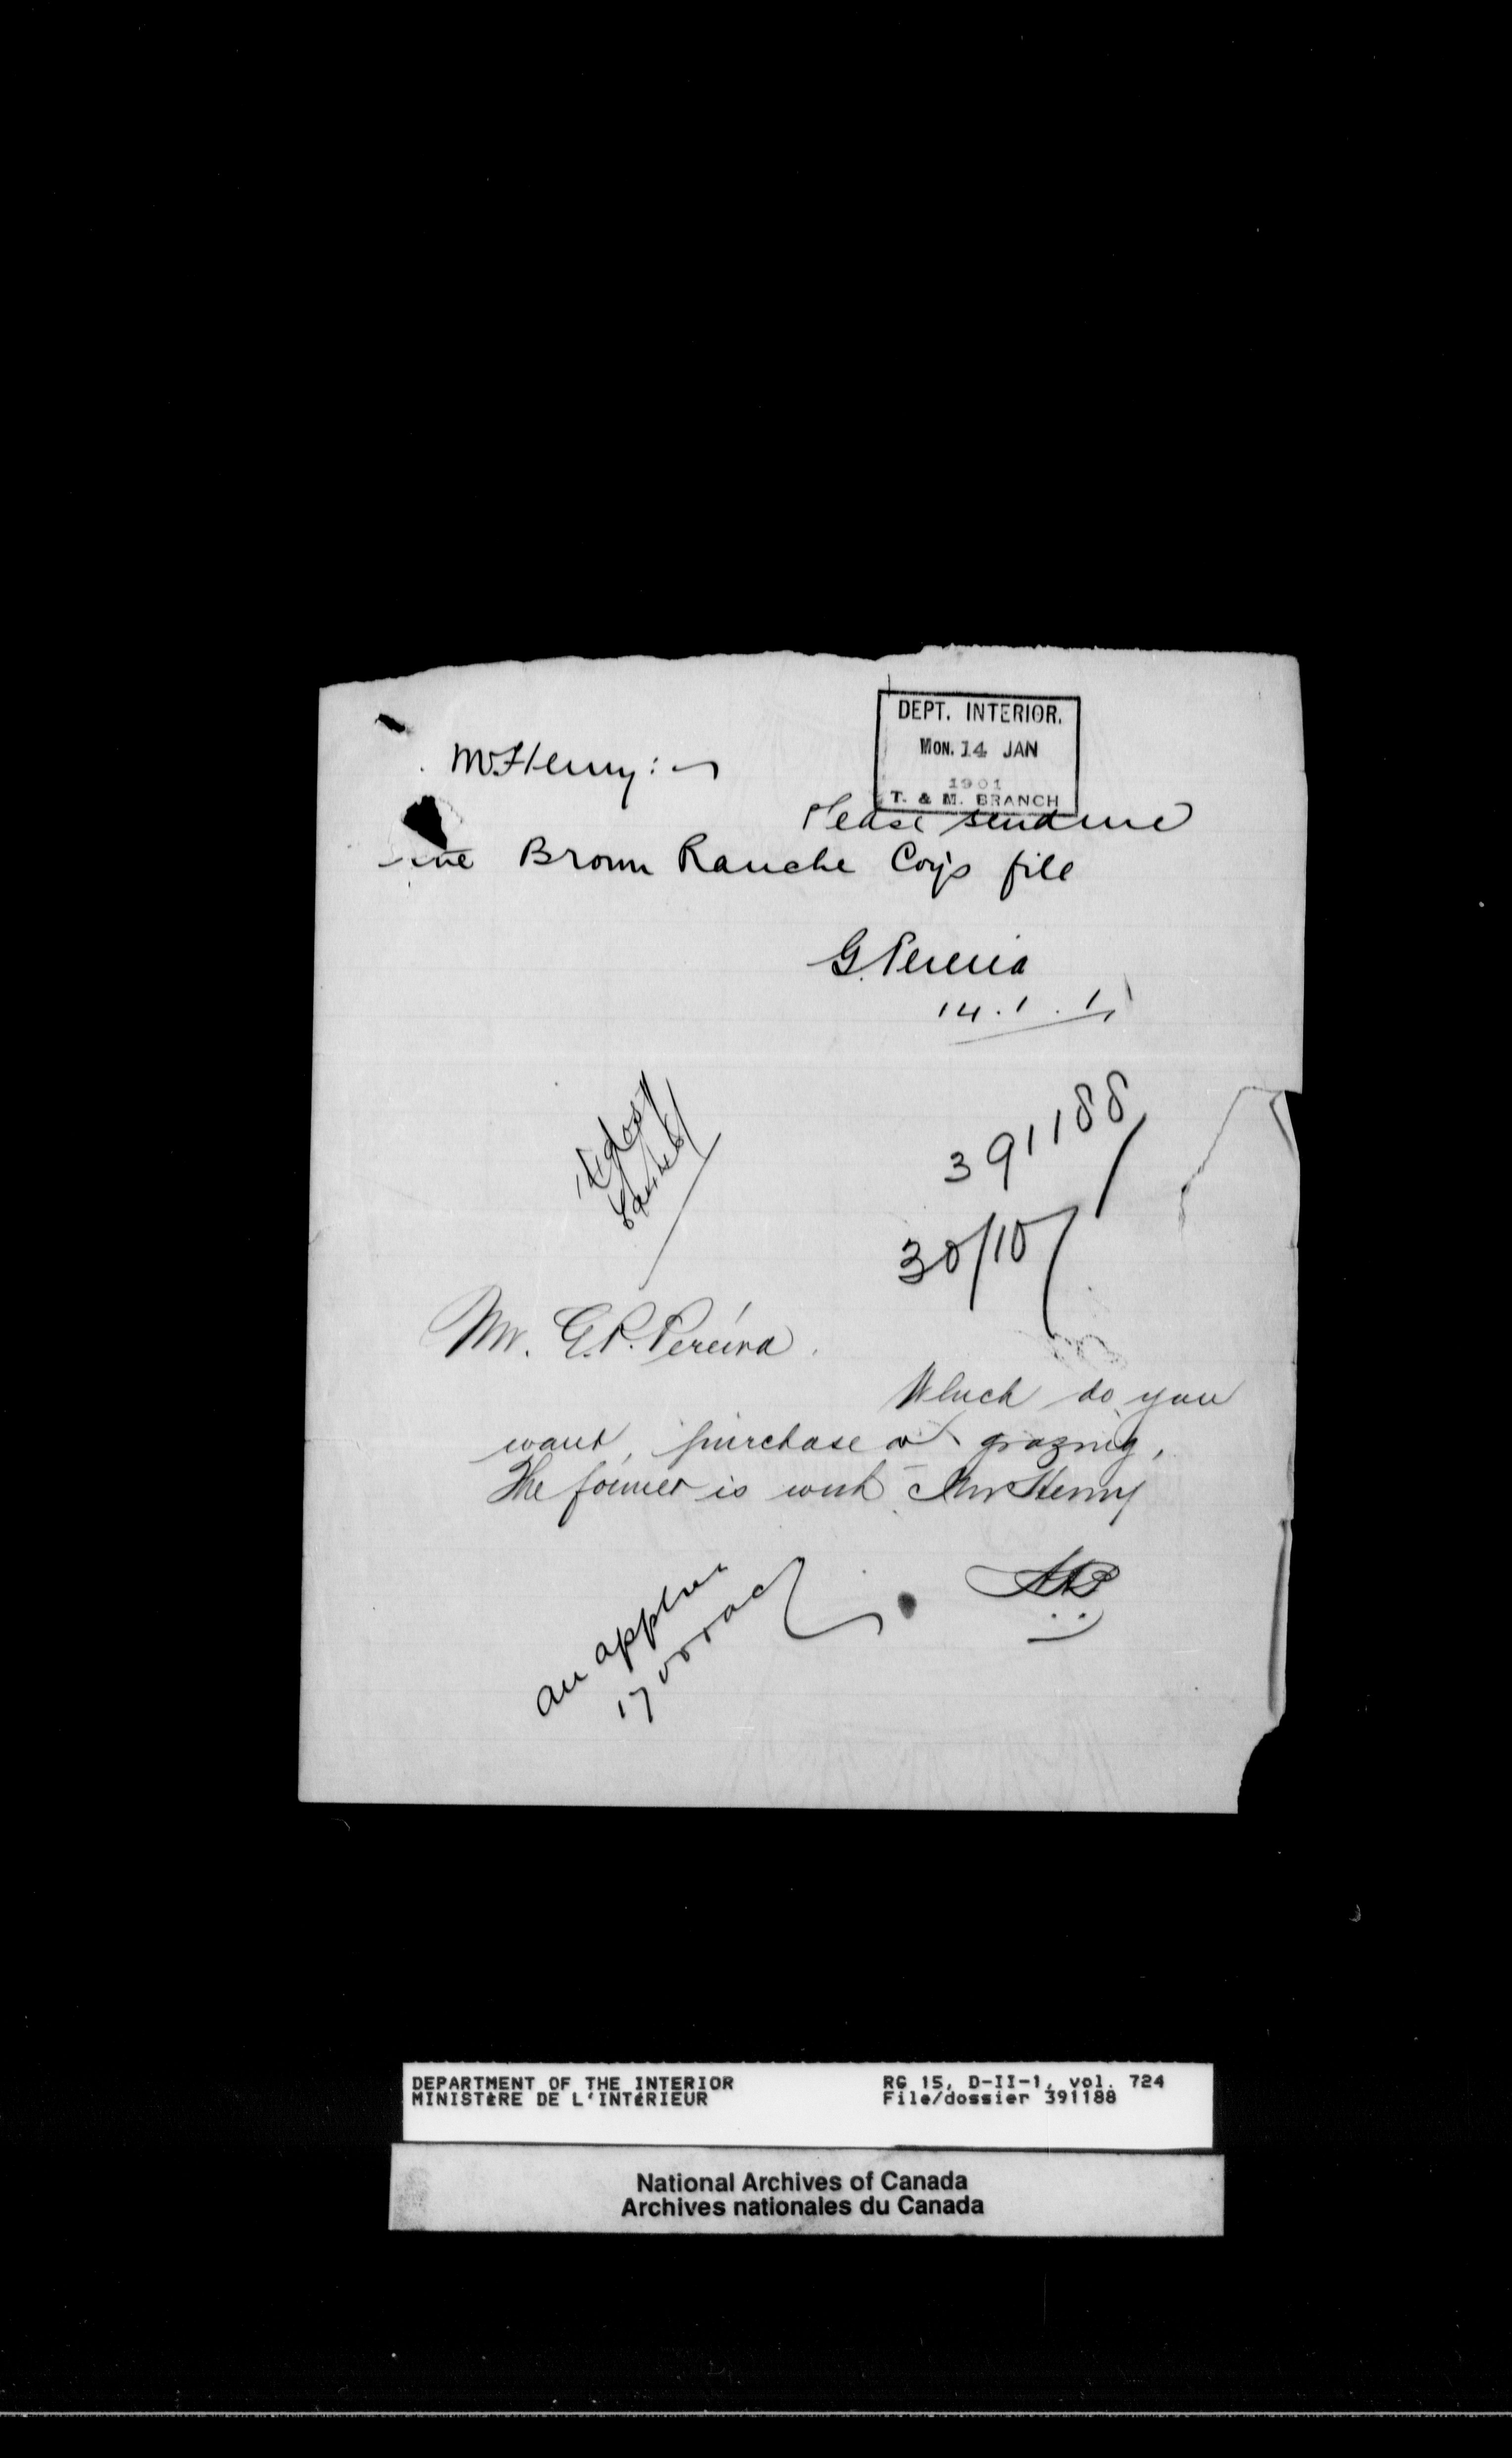 DEPT. INTERIOR.
MON. 14 JAN
1901
T. & M. BRANCH
Mr Henry:
Please send me
the Brown Ranche Coy's file
G. Pereira
14.1.1
391188
30/10
Mr. G.P. Pereira.
Which do you
want, purchase or grazing,
The former is with Mr Henry
an appln
17 00 0 ac
DEPARTMENT OF THE INTERIOR
MINISTÈRE DE L'INTÉRIEUR
RG 15, D-II-1, vol. 724
File/dossier 391188
National Archives of Canada
Archives nationales du Canada